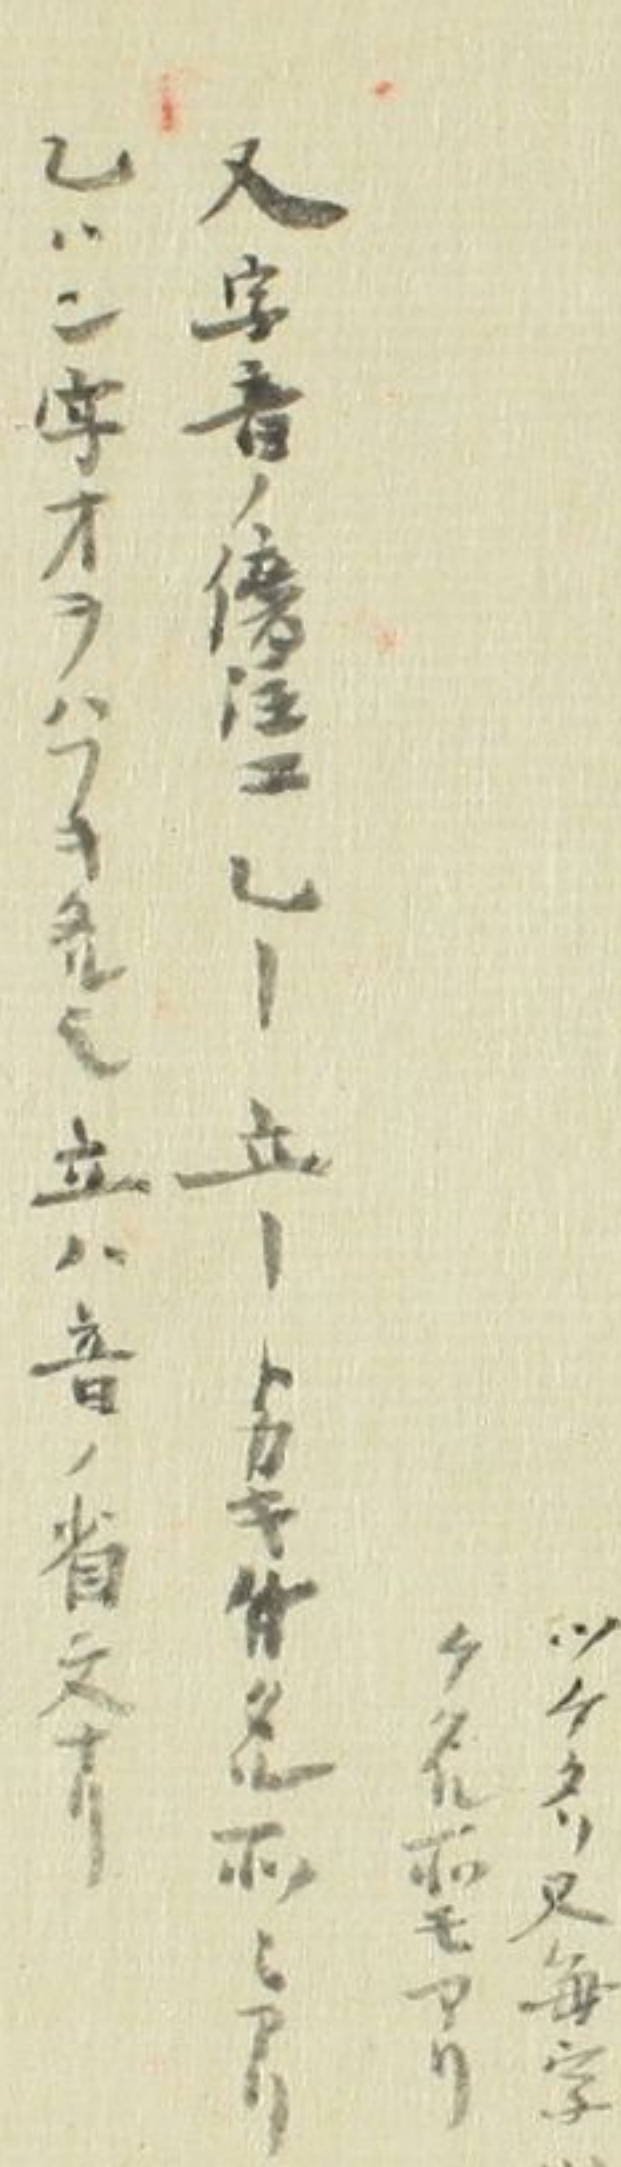 ツケタリ又毎字
ケタル所モアリ
又字音ノ傍注ニ乙｜立｜トカキ付タル所〻アリ
乙ハ二字オヲハフキタル也立ハ音ノ省文ナリ